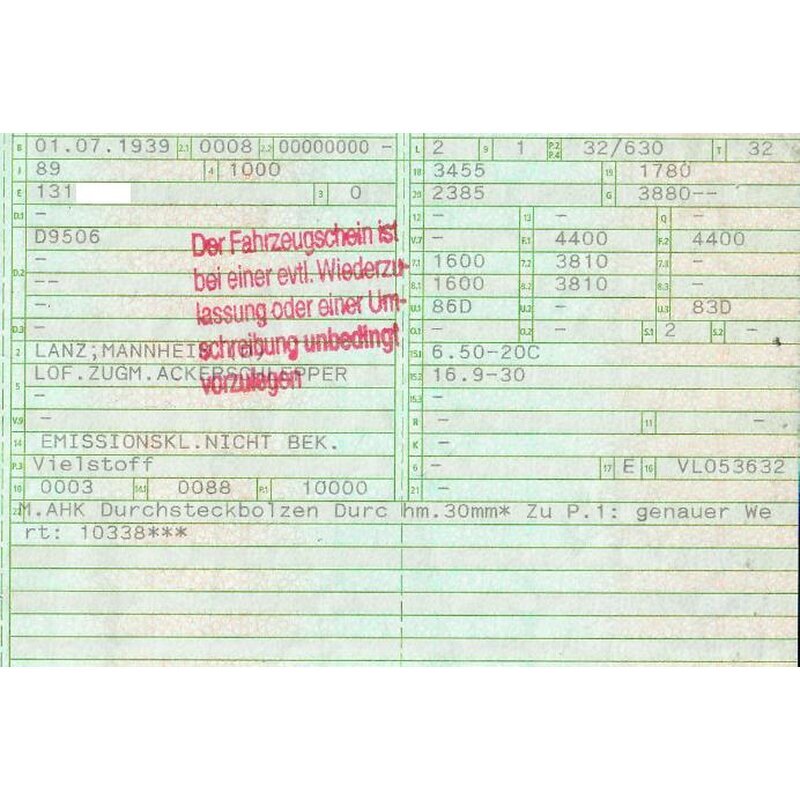 B 01.07.1939 2.1 0008 2.2 00000000 -
J 89 4 1000
E 131 3 0
D.1 -
D9506
D.2 -
-
--
D.3 -
2 LANZ;MANNHEI
5 LOF.ZUGM.ACKERSCHLEPPER
-
V.9 -
14 EMISSIONSKL.NICHT BEK.
P.3 Vielstoff
10 0003 14.1 0088 P.1 10000
22 M.AHK Durchsteckbolzen Durc hm.30mm* Zu P.1: genauer We
rt: 10338***
Der Fahrzeugschein ist
bei einer evtl. Wiederzu-
lassung oder einer Um-
schreibung unbedingt
vorzulegen
L 2 9 1 P.2 P.4 32/630 T 32
18 3455 19 1780
20 2385 G 3880--
12 - 13 - Q -
V.7 - F.1 4400 F.2 4400
7.1 1600 7.2 3810 7.3 -
8.1 1600 8.2 3810 8.3 -
U.1 86D U.2 - U.3 83D
O.1 - O.2 - S.1 2 S.2 -
15.1 6.50-20C
15.2 16.9-30
15.3 -
R - 11 -
K -
6 - 17 E 16 VL053632
21 -